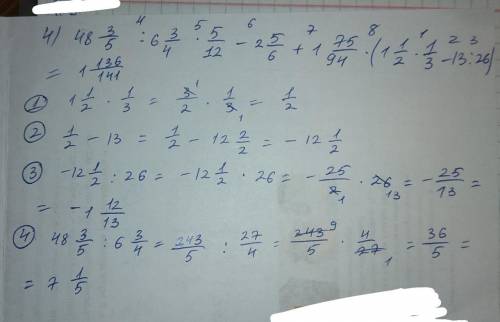 4 5 6 7 8 1 2 3
4) 48 3/5 : 6 3/4 · 5/12 − 2 5/6 + 1 75/94 · (1 1/2 · 1/3 − 13 : 26)
= 1 136/141
① 1 1/2 · 1/3 = 3/2 · 1/3 = 1/2
② 1/2 − 13 = 1/2 − 12 2/2 = − 12 1/2
③ −12 1/2 : 26 = −12 1/2 · 26 = − 25/2 · 26 13 = − 25/13 =
= −1 12/13
④ 48 3/5 : 6 3/4 = 243/5 : 27/4 = 243 9/5 · 4/27 1 = 36/5 =
= 7 1/5